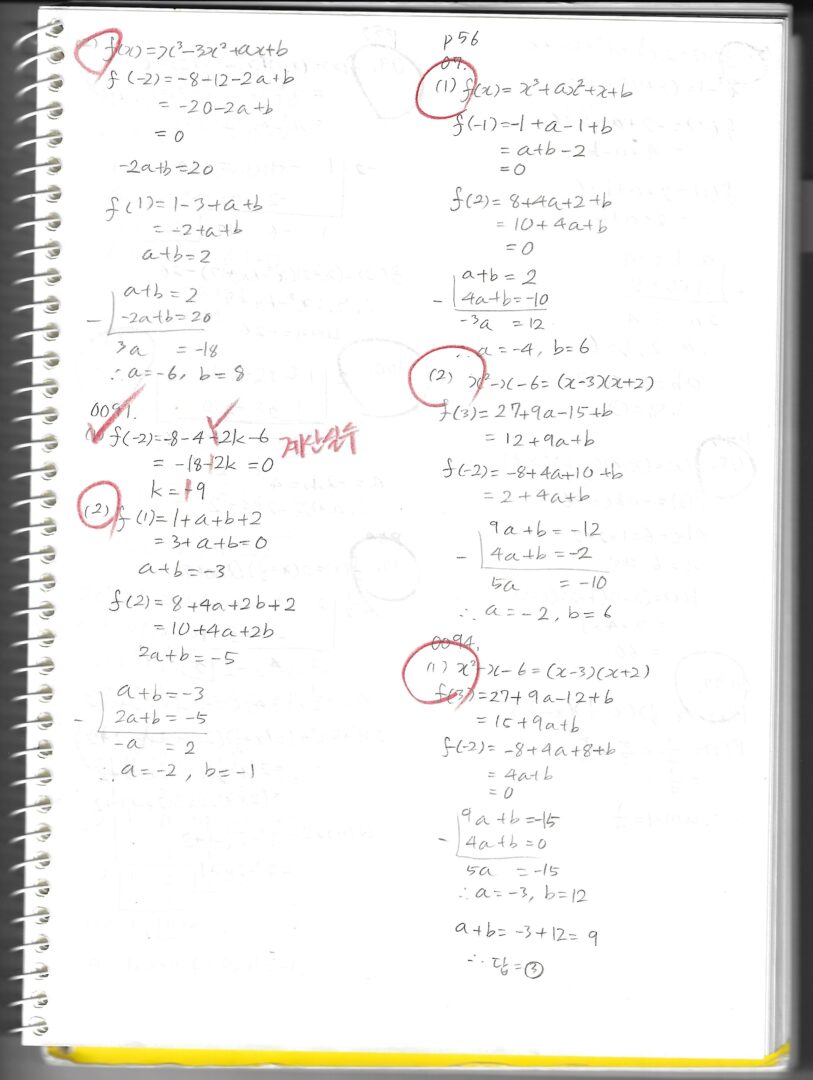 f(x)=x³-3x²+ax+b
f(-2)=-8-12-2a+b
=-20-2a+b
=0
-2a+b=20
f(1)=1-3+a+b
=-2+a+b
a+b=2
a+b=2
- -2a+b=20
3a =-18
∴a=-6, b=8
0091.
f(-2)=-8-4+2k-6 계산실수
=-18-2k=0
k=-9
(2) f(1)=1+a+b+2
=3+a+b=0
a+b=-3
f(2)=8+4a+2b+2
=10+4a+2b
2a+b=-5
a+b=-3
- 2a+b=-5
-a =2
∴a=-2, b=-1
p56
07.
(1) f(x)=x³+ax²+x+b
f(-1)=-1+a-1+b
=a+b-2
=0
f(2)=8+4a+2+b
=10+4a+b
=0
a+b=2
- 4a+b=-10
-3a =12
∴a=-4, b=6
(2) x²-x-6=(x-3)(x+2)
f(3)=27+9a-15+b
=12+9a+b
f(-2)=-8+4a+10+b
=2+4a+b
9a+b=-12
- 4a+b=-2
5a =-10
∴a=-2, b=6
0094.
(1) x²-x-6=(x-3)(x+2)
f(3)=27+9a-12+b
=15+9a+b
f(-2)=-8+4a+8+b
=4a+b
=0
9a+b=-15
- 4a+b=0
5a =-15
∴a=-3, b=12
a+b=-3+12=9
∴답=③